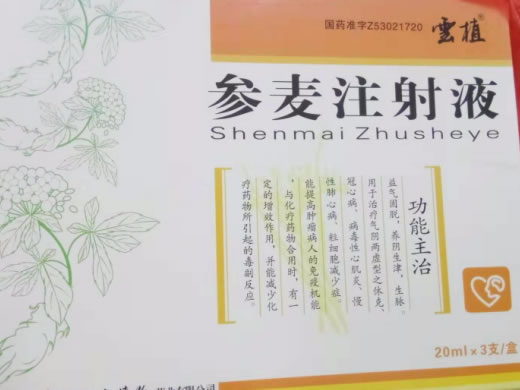 国药准字Z53021720
雲植®
参麦注射液
Shenmai Zhusheye
功能主治
益气固脱，养阴生津，生脉。
用于治疗气阴两虚型之休克、
冠心病、病毒性心肌炎、慢
性肺心病、粒细胞减少症。
能提高肿瘤病人的免疫机能
，与化疗药物合用时，有一
定的增效作用，并能减少化
疗药物所引起的毒副反应。
20ml×3支/盒